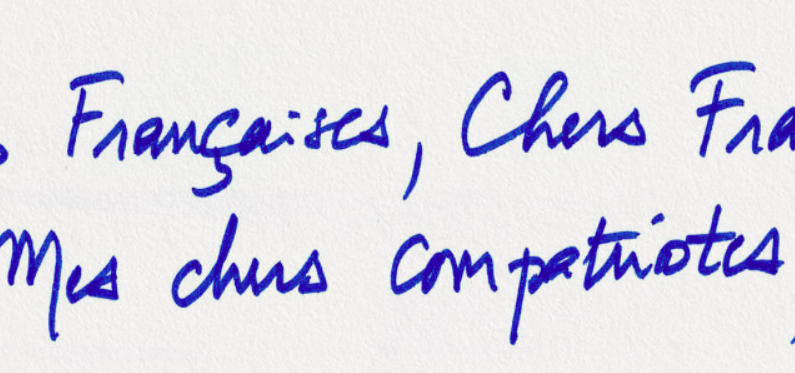 Françaises, Chers Fra
Mes chers compatriotes,